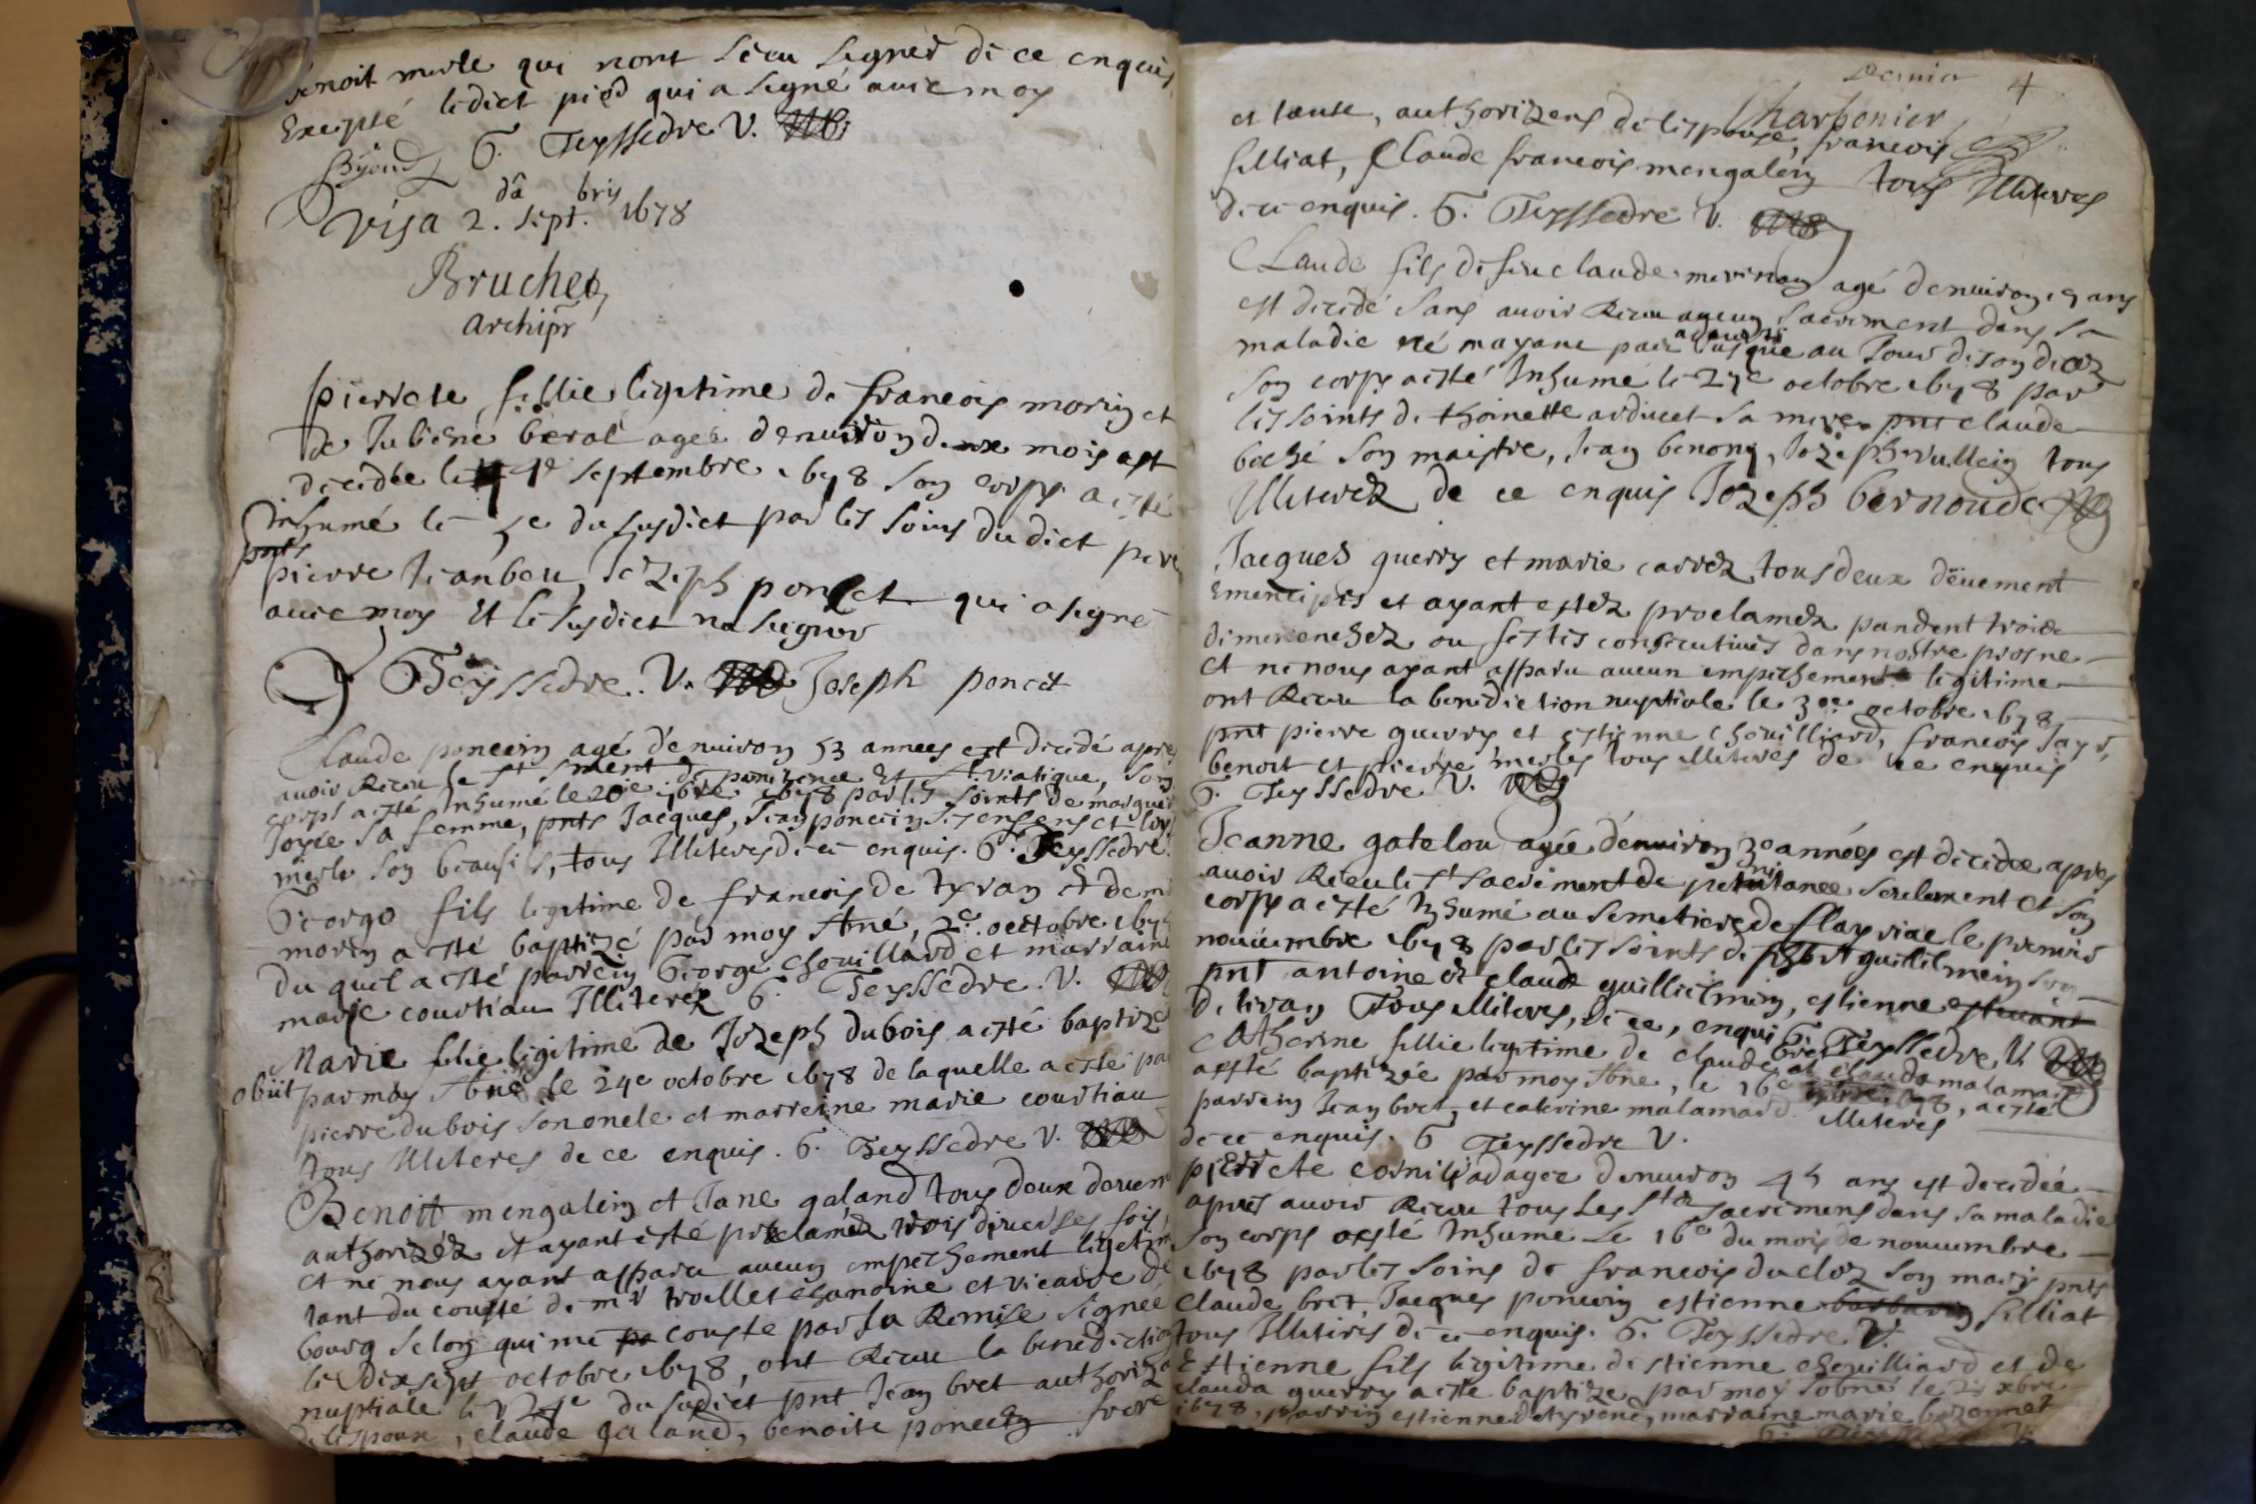 benoit merle qui nont sceu signer de ce enquis
Excepté ledict pied qui a signé avec moy
G. Teyssedre V.
Visa 2. da sept.bris 1678
Bruchet
archipr
pierrete fillie legitime de francois morin et
de Jubiene beral agee denuiron deux mois est
decedée le 1e septembre 1678 son corps a esté
Inhumé le du susdict par les soins du dict pere
pnts
pierre Jeanbeu, Jozeph poncet qui a signé
auec moy Et le susdict na signer
G Teissedre. V. Joseph poncet
Claude poncein agé denuiron 53 annees est decedé apres
auoir Receu le st sment de penitence Et st viatique, son
corps a esté Inhumé le 20e 7bre 1678 par les soints de
Joyce sa femme, pnts Jacques, Jean poncein ses enfens et
merle son beaufils, tous Illiteres de ce enquis. G. Teyssedre.
George fils legitime de francois de tyran Et de
morin a esté baptizé par moy sbné, 2e. octobre 1678
du quel a esté parrein George chouillard et marraine
marie courtiau Illiterez G. Teyssedre. V.
Marie fillie legitime de Jozeph dubois a esté baptizé
obiit par moy sbné le 24e octobre 1678 de laquelle a esté
pierre dubois son oncle et marreine marie courtiau
tous Illiteres de ce enquis. G. Teyssedre V.
Benoit mengalein et Jane galand tous deux
authorizéz et ayant esté proclaméz trois diuerses fois,
et ne nous ayant apparu aucun empechement
tant du cousté de mr trollet chanoine et vicaire de
bourg selon qui me couste par la Remise signee
le dixsept octobre 1678, ont Receu la benediction
nuptiale le 24e du susdict pnt Jean bret
de lespoux, claude galand, benoite poncein frere
Dernier 4
Charbonier
et tante, authorizens de lespouse, francois
filliat, Claude francois mengalein tous Illiteres
de ce enquis. G. Teyssedre V.
Claude fils de feu claude agé denuiron ans
est decedé sans auoir Receu aucun sacrement dans sa
maladie au Jour de son decez
son corps a esté Inhumé le 27e octobre 1678 par
les soints de thoinette arducet sa mere pnt claude
boché son maistre, Jean benony, Jozeph vullein tous
Illiterez de ce enquis Jozeph bernoude
Jacques guerry et marie carrez tous deux düement
Emencipés et ayant estéz proclaméz pandent trois
dimenenchez ou festes consecutiues dans nostre prosne
et ne nous ayant apparu aucun empeschement legitime
ont Receu la benediction nuptiale le octobre 1678,
pnt pierre guerry et estienne chouilliard, francois Jayr,
benoit et pierre merles tous illiteres de ce enquis
G. Teyssedre V.
Jeanne gatelou agée denuiron annees est decidee apres
auoir Receu le st sacrement de penitance seulement et son
corps a esté Inhumé au semetiere de le premier
nouuembre 1678 par les soints de guillelmein
pnt antoine et claude guillielmin, estienne
de tiran Tous illiteres, de ce, enquis G. Teyssedre V.
Catherine fillie legitime de claude bret et claude malamard
a esté baptizée par moy sbné, le 16e 1678, a esté
parrein Jean bret, et caterine malamard Illiteres
de ce enquis. G Teyssedre V.
pierrete agee denuiron 45 ans est decedée
apres auoir Receu tous Les sts sacremens dans sa maladie
son corps a esté Inhume Le 16e du mois de nouuembre
1678 par les soins de francois ducloz son mary pnts
Claude bret, Jacques poncein estienne filliat
tous Illiteres de ce enquis. G. Teyssedre V.
Estienne fils legitime destienne chouilliard et de
clauda guerry a esté baptize par moy sobné le xbre
1678, parrin estienne detyrend, marraine marie bozonnet
G. Teyssedre V.